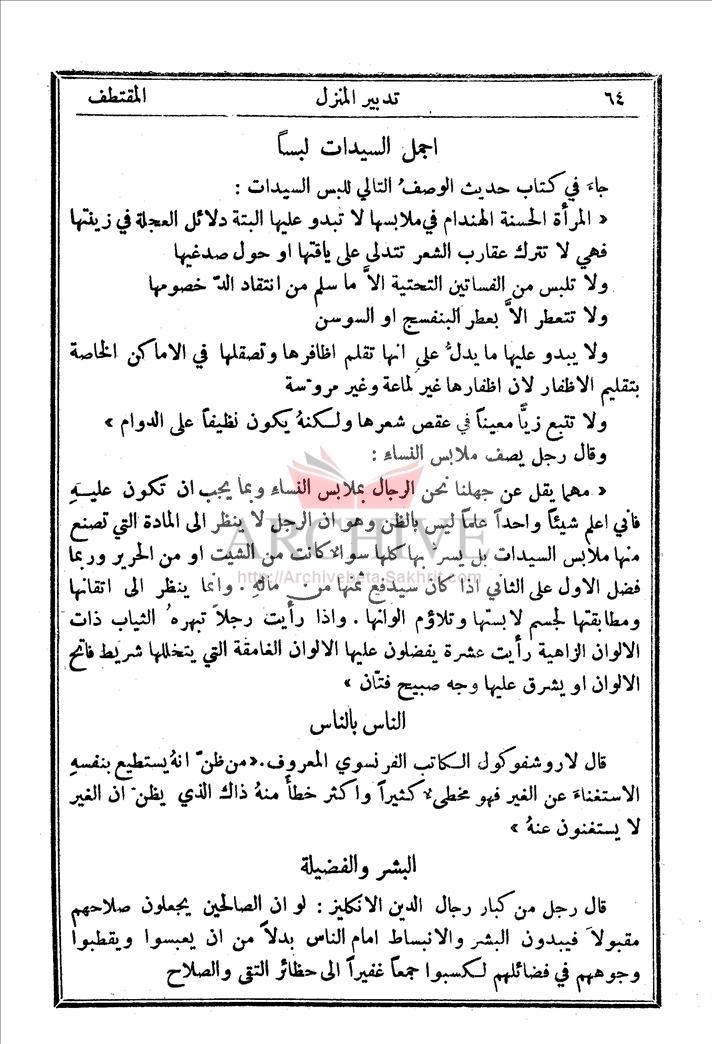 ٦٤ تدبير المنزل المقتطف
اجمل السيدات لبساً
جاءَ في كتاب حديث الوصفُ التالي للبس السيدات :
« المرأة الحسنة الهندام في ملابسها لا تبدو عليها البتة دلائل العجلة في زينتها
فهي لا تترك عقارب الشعر تتدلى على ياقتها او حول صدغيها
ولا تلبس من الفساتين التحتية الاَّ ما سلم من انتقاد الدّ خصومها
ولا تتعطر الاَّ بعطر البنفسج او السوسن
ولا يبدو عليها ما يدلُّ على انها تقلم اظافرها وتصقلها في الاماكن الخاصة
بتقليم الاظفار لان اظفارها غير لماعة وغير مروّسة
ولا تتبع زيًّا معيناً في عقص شعرها ولكنهُ يكون نظيفاً على الدوام »
وقال رجل يصف ملابس النساء :
« مهما يقل عن جهلنا نحن الرجال بملابس النساء وبما يجب ان تكون عليــهِ
فاني اعلم شيئاً واحداً علماً ليس بالظن وهو ان الرجل لا ينظر الى المادة التي تصنع
منها ملابس السيدات بل يسرّ بها كلها سوالا كانت من الشيت او من الحرير وربما
فضل الاول على الثاني اذا كان سيدفع ثمنها من مالهِ . وانما ينظر الى اتقانها
ومطابقتها لجسم لابستها وتلاؤم الوانها . واذا رأيت رجلاً تبهرهُ الثياب ذات
الالوان الزاهية رأيت عشرة يفضلون عليها الالوان الغامقة التي يتخللها شريط فاتح
الالوان او يشرق عليها وجه صبيح فتّان »
الناس بالناس
قال لاروشفوكول الكاتب الفرنسوي المعروف .«من ظنّ انهُ يستطيع بنفسهِ
الاستغناءَ عن الغير فهو مخطىء كثيراً واكثر خطأً منهُ ذاك الذي يظنّ ان الغير
لا يستغنون عنهُ »
البشر والفضيلة
قال رجل من كبار رجال الدين الانكليز : لو ان الصالحين يجعلون صلاحهم
مقبولاً فيبدون البشر والانبساط امام الناس بدلاً من ان يعبسوا ويقطبوا
وجوههم في فضائلهم لكسبوا جمعاً غفيراً الى حظائر التقى والصلاح
ARCHIVE
http://Archivebeta.Sakhrit.com